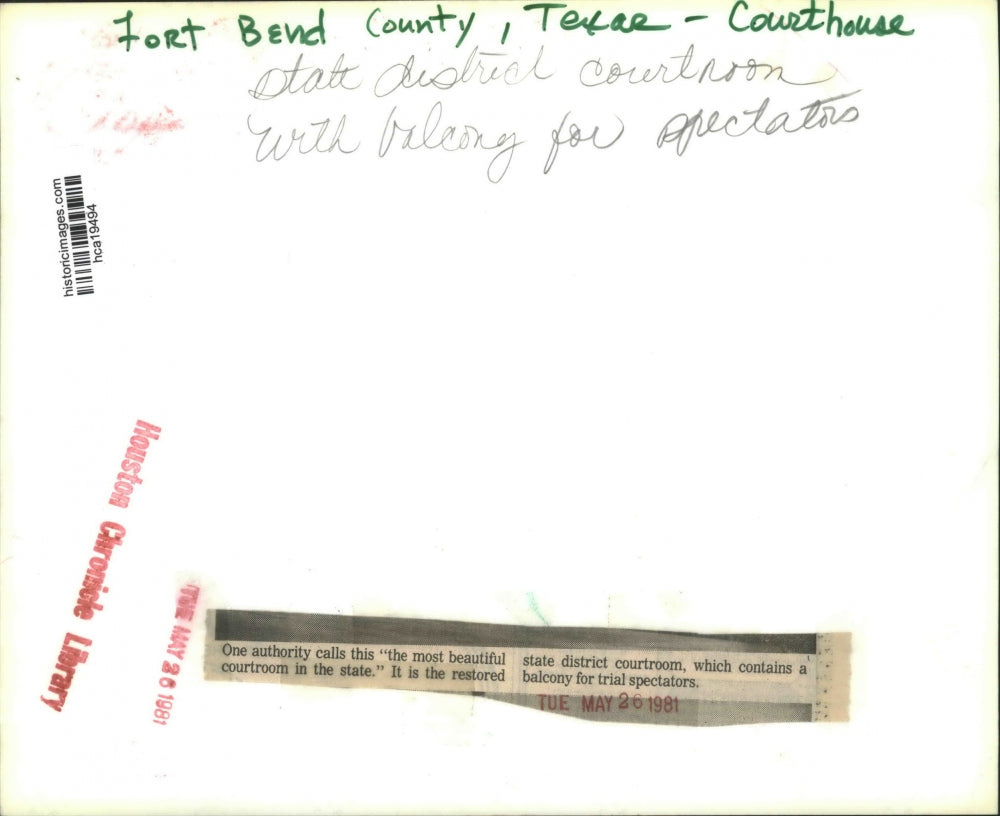 Fort Bend County, Texas - Courthouse
state district courtroom
with balcony for spectators
historicimages.com
hca19494
Houston Chronicle Library
TUE MAY 26 1981
One authority calls this “the most beautiful
courtroom in the state.” It is the restored
state district courtroom, which contains a
balcony for trial spectators.
TUE MAY 26 1981